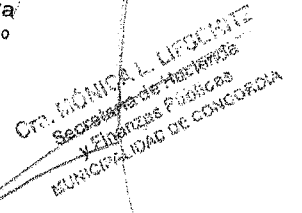 va
o
Cr. MÓNICA L. LIFSCHITZ
Secretaria de Hacienda
y Finanzas Públicas
MUNICIPALIDAD DE CONCORDIA